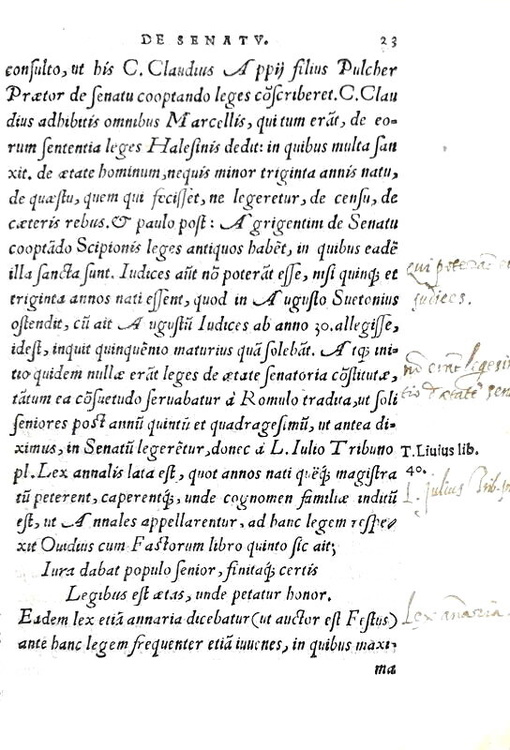 DE SENATV. 23
consulto, ut his C. Claudius Appij filius Pulcher
Prætor de senatu cooptando leges cõscriberet. C. Clau
dius adhibitis omnibus Marcellis, qui tum erãt, de eo-
rum sententia leges Halesinis dedit: in quibus multa san
xit. de ætate hominum, nequis minor triginta annis natu,
de quæstu, quem qui fecisset, ne legeretur, de censu, de
cæteris rebus. & paulo post: Agrigentini de Senatu
cooptãdo Scipionis leges antiquos habẽt, in quibus eadẽ
illa sancta sunt. Iudices aũt nõ poterãt esse, nisi quinq; et
triginta annos nati essent, quod in Augusto Suetonius
ostendit, cũ ait Augustũ Iudices ab anno 30. allegisse,
idest, inquit quinquẽnio maturius quã solebãt. Atq; ini-
tio quidem nullæ erãt leges de ætate senatoria cõstitutæ,
tãtum ea cõsuetudo seruabatur á Romulo tradita, ut soli
seniores post annũ quintũ et quadragesimũ, ut antea di-
ximus, in Senatũ legerẽtur, donec á L. Iulio Tribuno
T. Liuius lib.
40.
pl. Lex annalis lata est, quot annos nati quẽq; magistra
tũ peterent, caperentq;, unde cognomen familiæ inditũ
est, ut Annales appellarentur, ad hanc legem respe
xit Ouidius cum Fastorum libro quinto sic ait;
Iura dabat populo senior, finitaq; certis
Legibus est ætas, unde petatur honor.
Eadem lex etiã annaria dicebatur (ut auctor est Festus)
ante hanc legem frequenter etiã iuuenes, in quibus maxi-
ma
Iudices.
L. Julius Trib.
Lex annaria.